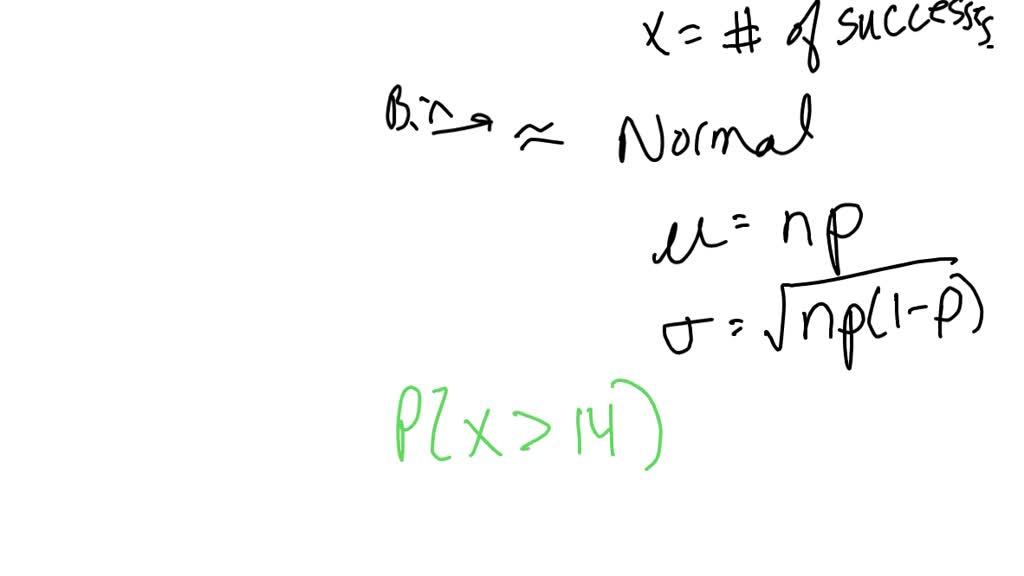 x = # of successes
Bin → ≈ Normal
μ = np
σ = √np(1-p)
P(x > 14)